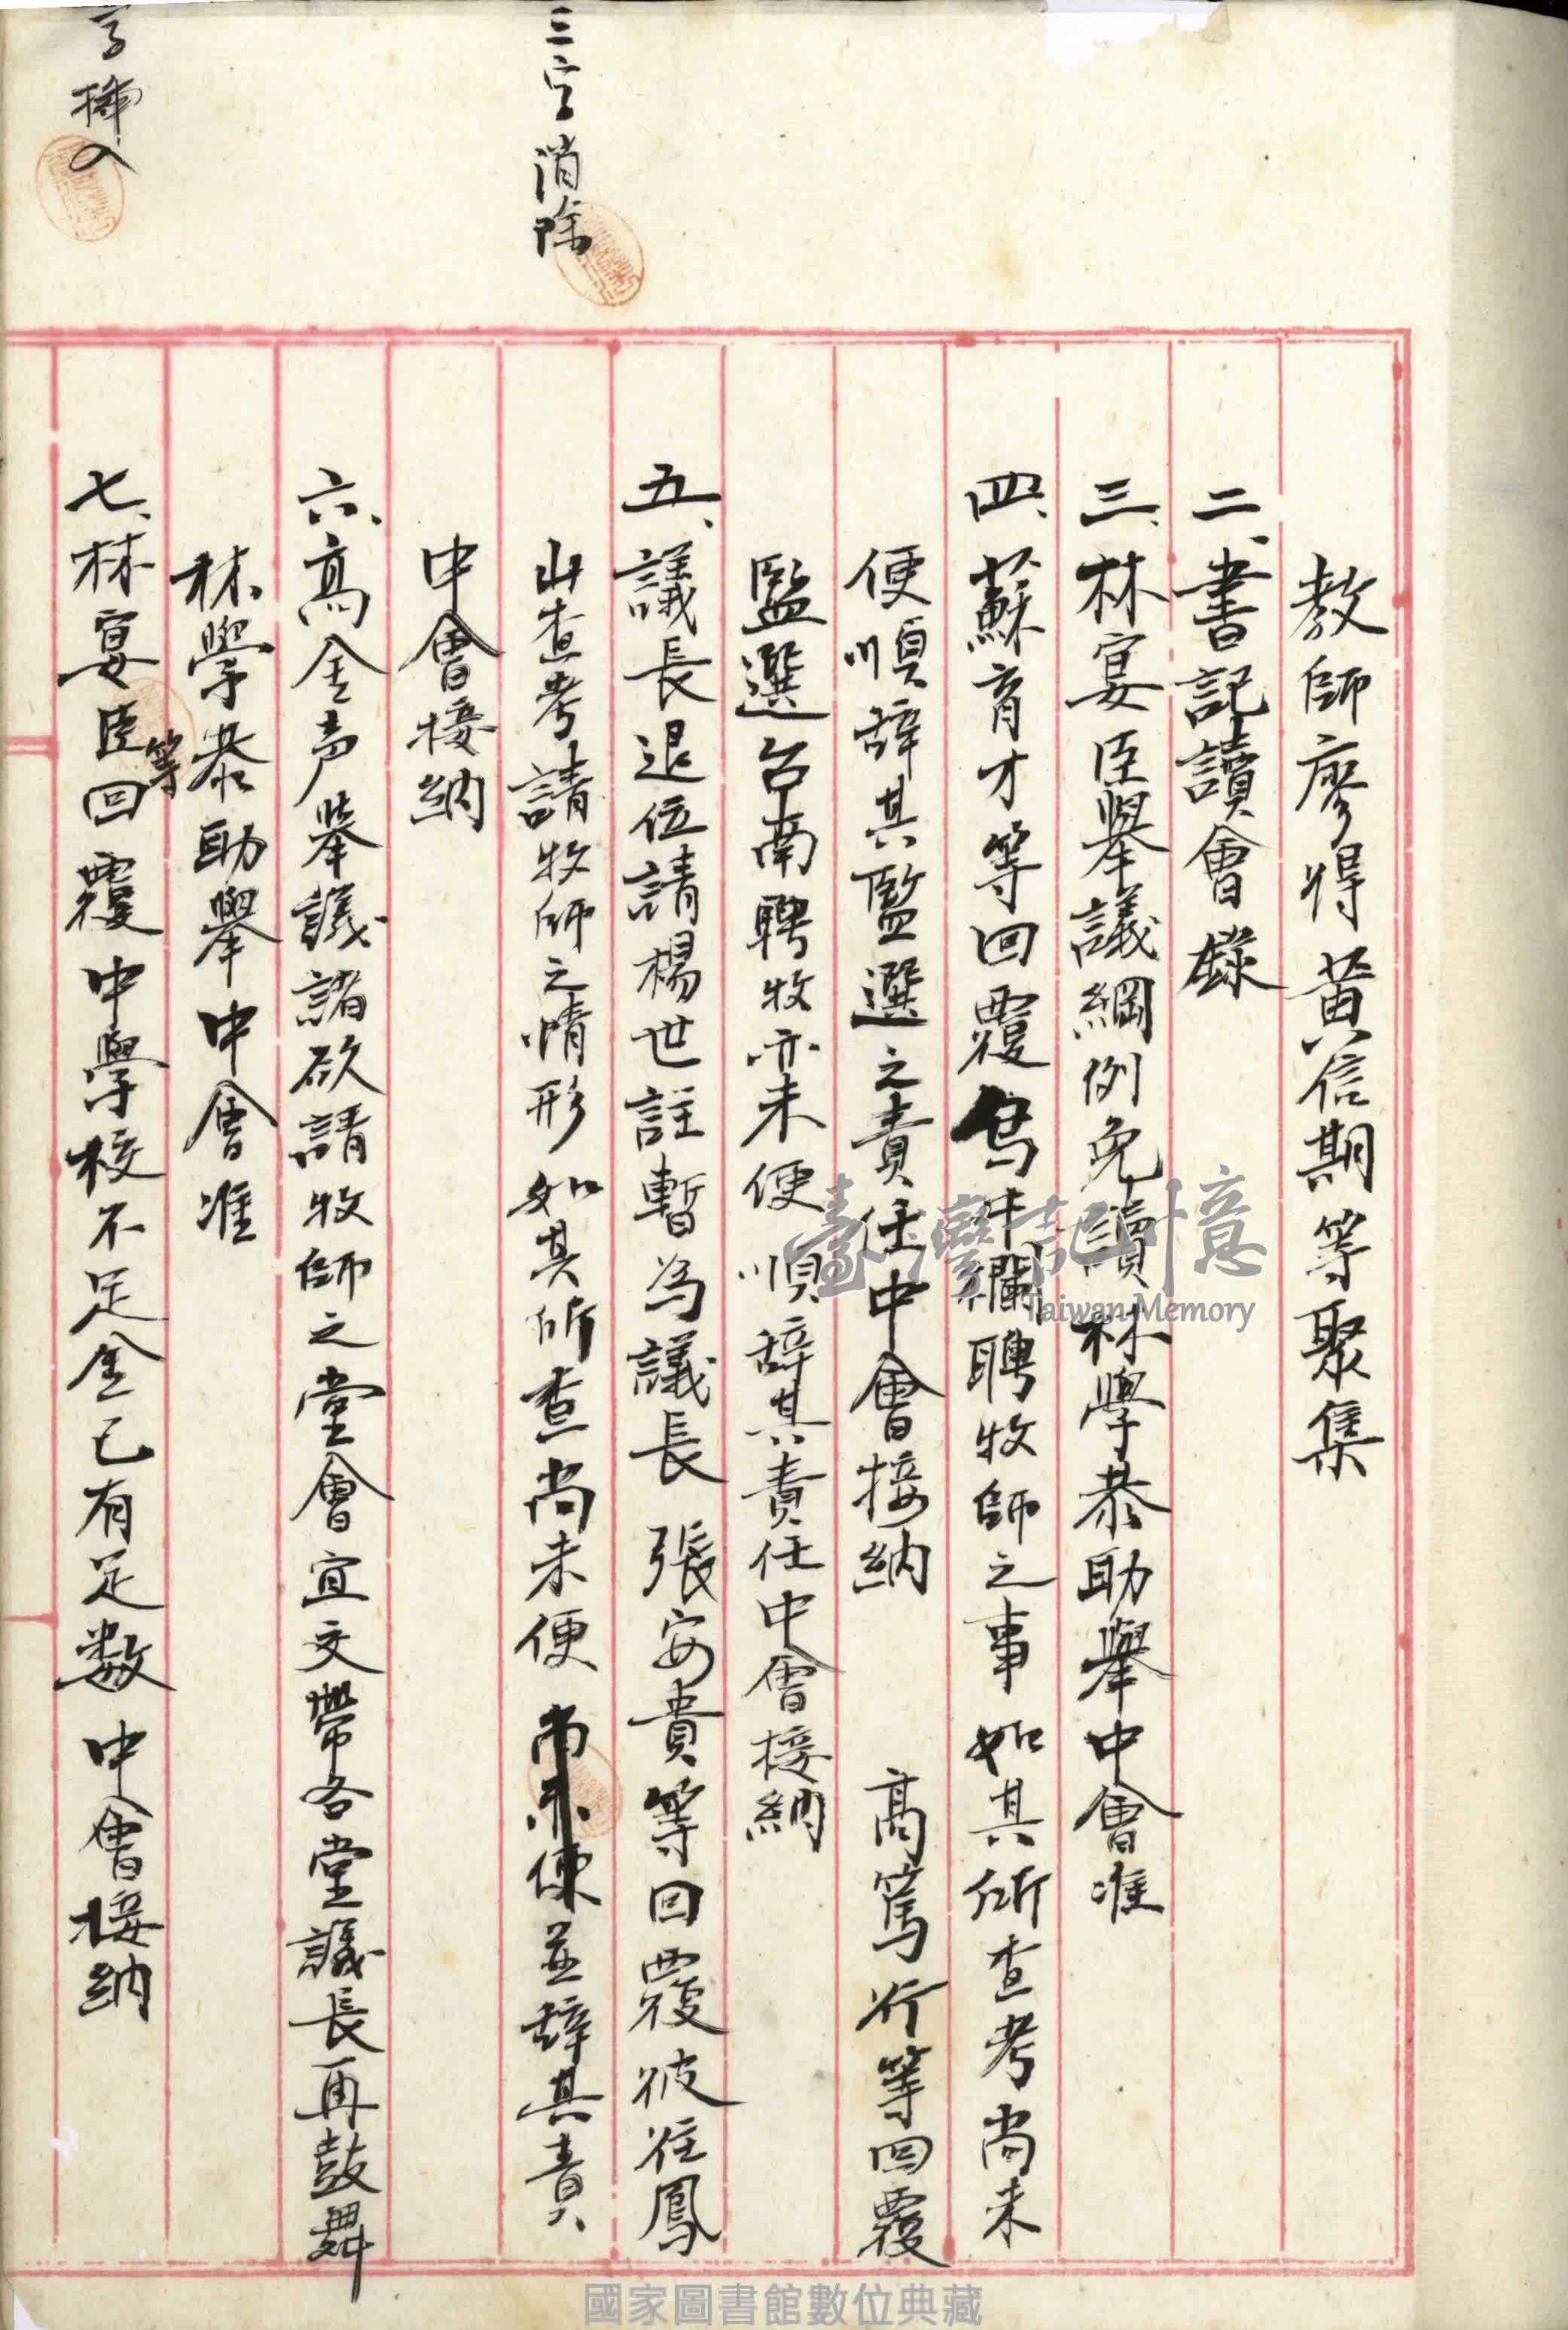 教師廖得黃信期等聚集
二、書記讀會錄
三、林宴臣舉議綱例免讀林學恭助舉中會准
四、蘇育才等回覆為牛欄聘牧師之事如其所查考尚未
便順辞其監選之責任中會接納 高篤行等回覆
監選台南聘牧亦未便順辞其責任中會接納
五、議長退位請楊世註暫為議長 張安貴等回覆彼往鳳
山查考請牧師之情形如其所查尚未便尚未便並辞其責
中會接納
六、高金声舉議諸欲請牧師之堂會宜交帶各堂議長再鼓舞
林學恭助舉中會准
七、林宴臣等回覆中學校不足金已有足数 中會接納
三字消除
字挿入
臺灣記憶
Taiwan Memory
國家圖書館數位典藏